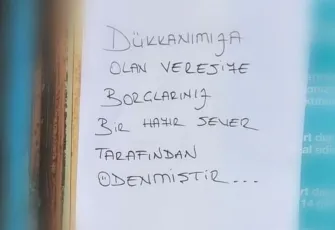 DÜKKANIMIZA
OLAN VERESİYE
BORÇLARINIZ
BİR HAYIR SEVER
TARAFINDAN
ÖDENMİŞTİR...